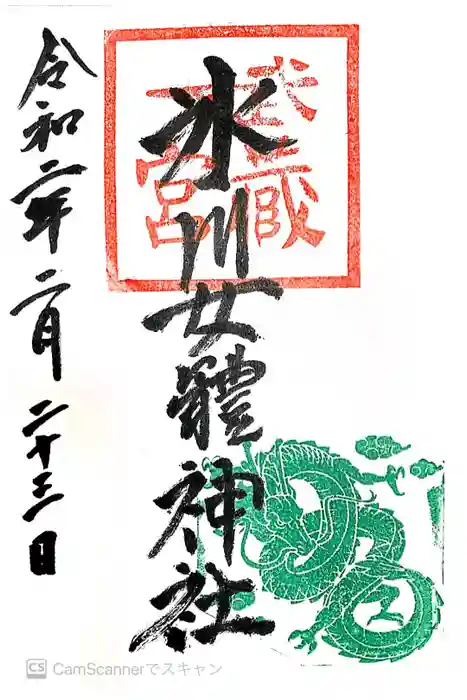 武蔵
一宮
氷川女體神社
令和二年二月二十三日
CS CamScannerでスキャン